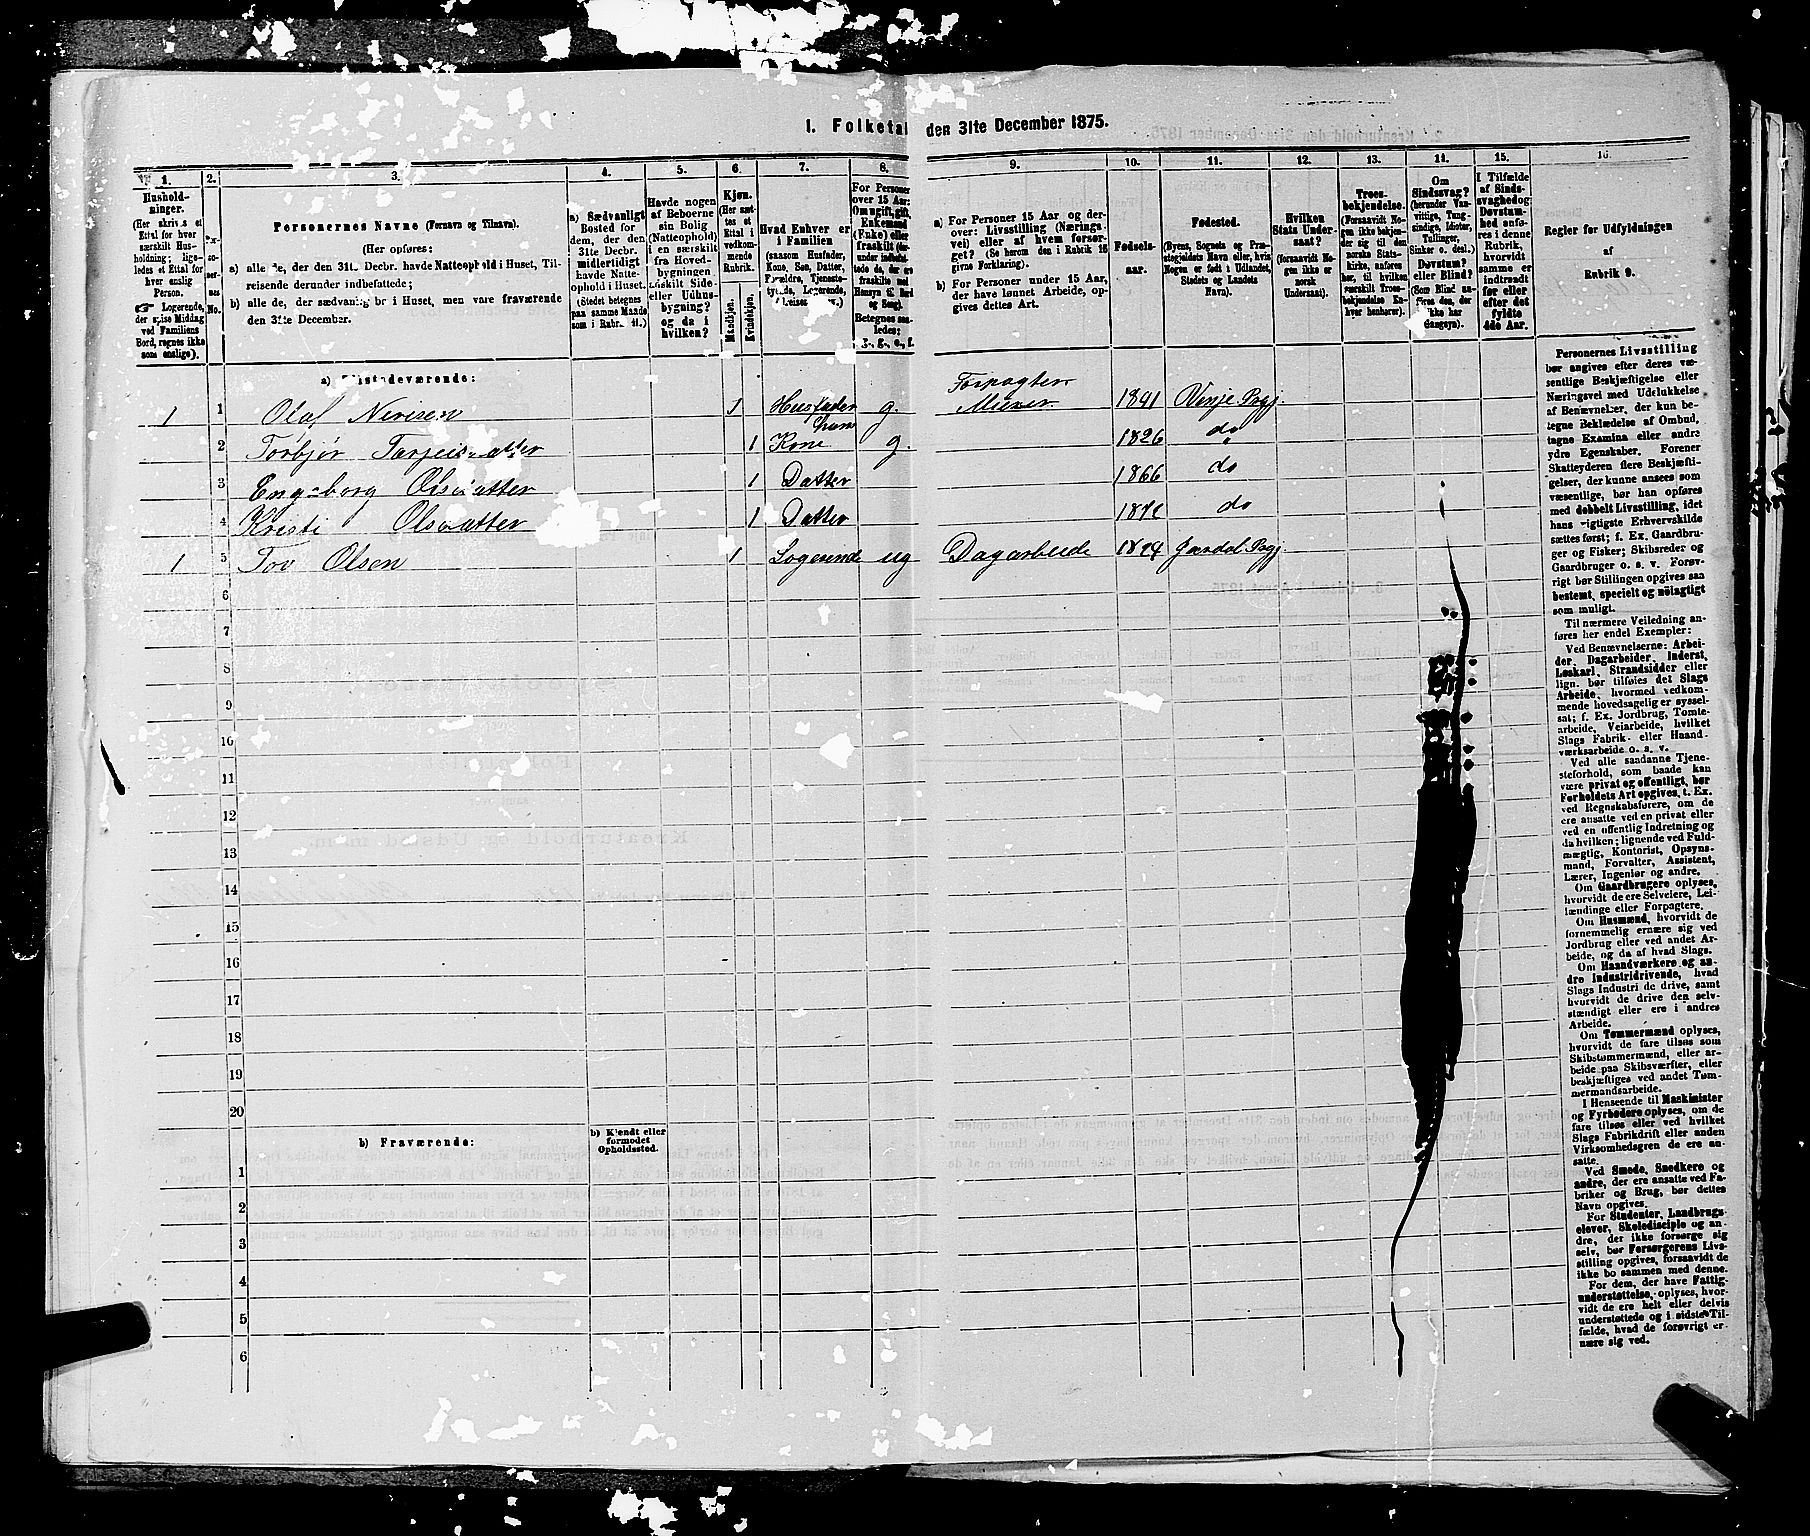 I. Folketa den 31te December 1875.
1. 2. 3. 4. 5. 6. 7. 8. 9. 10. 11. 12. 13. 14. 15. 16.
Hushold-
ninger.
(Her skrives et
Ettal for hver
særskilt Hus-
holdning; lige-
ledes et Ettal for
hver enslig
Person.
Logerende,
der spise Middag
ved Familiens
Bord, regnes ikke
som enslige).
No.
Personernes Navne (Fornavn og Tilnavn).
(Her opføres:
a) alle de, der den 31te Decbr. havde Natteophold i Huset, Til-
reisende derunder indbefattede;
b) alle de, der sædvanlig bor i Huset, men vare fraværende
den 31te December.
a) Sædvanligt
Bosted for
dem, der den
31te Decbr.
midlertidigt
havde Natte-
ophold i Huset.
(Stedet betegnes
paa samme Maade
som i Rubr.
Havde nogen
af Beboerne
sin Bolig
(Natteophold)
i en særskilt
fra Hoved-
bygningen
adskilt Side-
eller Udhus-
bygning?
og da i
hvilken?
Kjøn.
(Her sæt-
tes et
Ettal i
vedkom-
mende
Rubrik.
Mandkjøn.
Kvindekjøn.
Hvad Enhver er
i Familien
(saasom Husfader,
Kone, Søn, Datter,
Forældre, Tjeneste-
tyende, Logerende,
For Personer
over 15 Aar:
Om ugift, gift,
Enkemand
(Enke) eller
fraskilt
Betegnes saa-
ledes:
a) For Personer 15 Aar og der-
over: Livsstilling (Nærings-
vei) eller af hvem forsør-
get? (Se herom den i Rubrik 16
givne Forklaring).
b) For Personer under 15 Aar,
der have lønnet Arbeide, op-
gives dettes Art.
Fødsels-
aar.
Fødested.
(Byens, Sognets og Præ-
stegjeldets Navn eller, hvis
Nogen er født i Udlandet,
Stedets og Landets
Navn).
Hvilken
Stats Under-
saat?
(forsaavidt No-
gen ikke er
norsk
Undersaat).
Troes-
bekjendelse.
(Forsaavidt No-
gen ikke bekjen-
der sig til den
norske Stats-
kirke, anføres
her, til hvilken
særskilt Troes-
bekjendelse En-
hver henhører).
Om
Sindssvag?
(herunder Van-
vittige, Tung-
sindige, Idioter,
Tullinger,
Sinker o. desl.)
Døvstum?
eller Blind?
(Som Blind an-
føres den, der
ikke har
Gangsyn).
I Tilfælde
af Sinds-
svaghed og
Døvstum-
hed anfø-
res i denne
Rubrik,
hvorvidt
samme er
indtraadt
før eller
efter det
fyldte
4de Aar.
Regler for Udfyldningen
af
Rubrik 9.
a) Tilstedeværende:
1 1 Olaf Nerisen 1 Husfader g. Forpagter Murer 1841 Vinje Prgj.
2 Torbjør Tarjeisdatter 1 Kone g. 1826 do
3 Engeborg Olsdatter 1 Datter 1866 do
4 Kristi Olsdatter 1 Datter do
1 5 Tov Olsen 1 Logerende ug Dagarbeide Prgj.
6
7
8
9
10
11
12
13
14
15
16
17
18
19
20
b) Fraværende:
b) Kjendt eller
formodet
Opholdssted.
1
2
3
4
5
6
Personernes Livsstilling
bør angives efter deres væ-
sentlige Beskjæftigelse eller
Næringsvei med Udelukkelse
af Benævnelser, der kun be-
tegne Beklædelse af Ombud,
tagne Examina eller andre
ydre Egenskaber. Forener
Skatteyderen flere Beskjæfti-
gelser, der kunne ansees som
væsentlige, bør han opføres
med dobbelt Livsstilling, idet
hans vigtigste Erhvervskilde
sættes først; f. Ex. Gaardbru-
ger og Fisker; Skibsreder og
Gaardbruger o. s. v. Forøv-
rigt bør Stillingen opgives saa
bestemt, specielt og nøiagtigt
som muligt.
Til nærmere Veiledning an-
føres her endel Exempler:
Ved Benævnelserne: Arbei-
der, Dagarbeider, Inderst,
Løskarl, Strandsidder eller
lign. bør tilføies det Slags
Arbeide, hvormed vedkom-
mende hovedsagelig er syssel-
sat; f. Ex. Jordbrug, Tomte-
arbeide, Veiarbeide, hvilket
Slags Fabrik- eller Haand-
værksarbeide o. s. v.
Ved alle saadanne Tjene-
steforhold, som baade kan
være privat og offentligt, bør
Forholdets Art opgives, t. Ex.
ved Regnskabsførere, om de
ere ansatte ved en privat eller
ved en offentlig Indretning og
da hvilken; lignende ved Fuld-
mægtig, Kontorist, Opsyns-
mand, Forvalter, Assistent,
Lærer, Ingeniør og andre.
Om Gaardbrugere oplyses,
hvorvidt de ere Selveiere, Lei-
lændinge eller Forpagtere.
Om Husmænd, hvorvidt de
fornemmelig ernære sig ved
Jordbrug eller ved andet Ar-
beide, og da af hvad Slags.
Om Haandværkere og an-
dre Industridrivende, hvad
Slags Industri de drive, samt
hvorvidt de drive den selv-
stændigt eller ere i andres
Arbeide.
Om Tømmermænd oplyses,
hvorvidt de fare tilsøs som
Skibstømmermænd, eller ar-
beide paa Skibsværfter, eller
beskjæftiges ved andet Tøm-
mermandsarbeide.
I Henseende til Maskinister
og Fyrbødere oplyses, om de
fare tilsøs eller ved hvilket
Slags Fabrikdrift eller anden
Virksomhedsgren de ere an-
satte.
Ved Smede, Snedkere og
andre, der ere ansatte ved Fa-
briker og Brug, bør dettes
Navn opgives.
For Studenter, Landbrugs-
elever, Skoledisciple og an-
dre, der ikke forsørge sig
selv, bør Forsørgerens Livs-
stilling opgives, forsaavidt de
ikke bo sammen med denne.
For dem, der have Fattig-
understøttelse, oplyses, hvor-
vidt de ere helt eller delvis
understøttede og i sidste Til-
fælde, hvad de forøvrigt er-
nære sig ved.